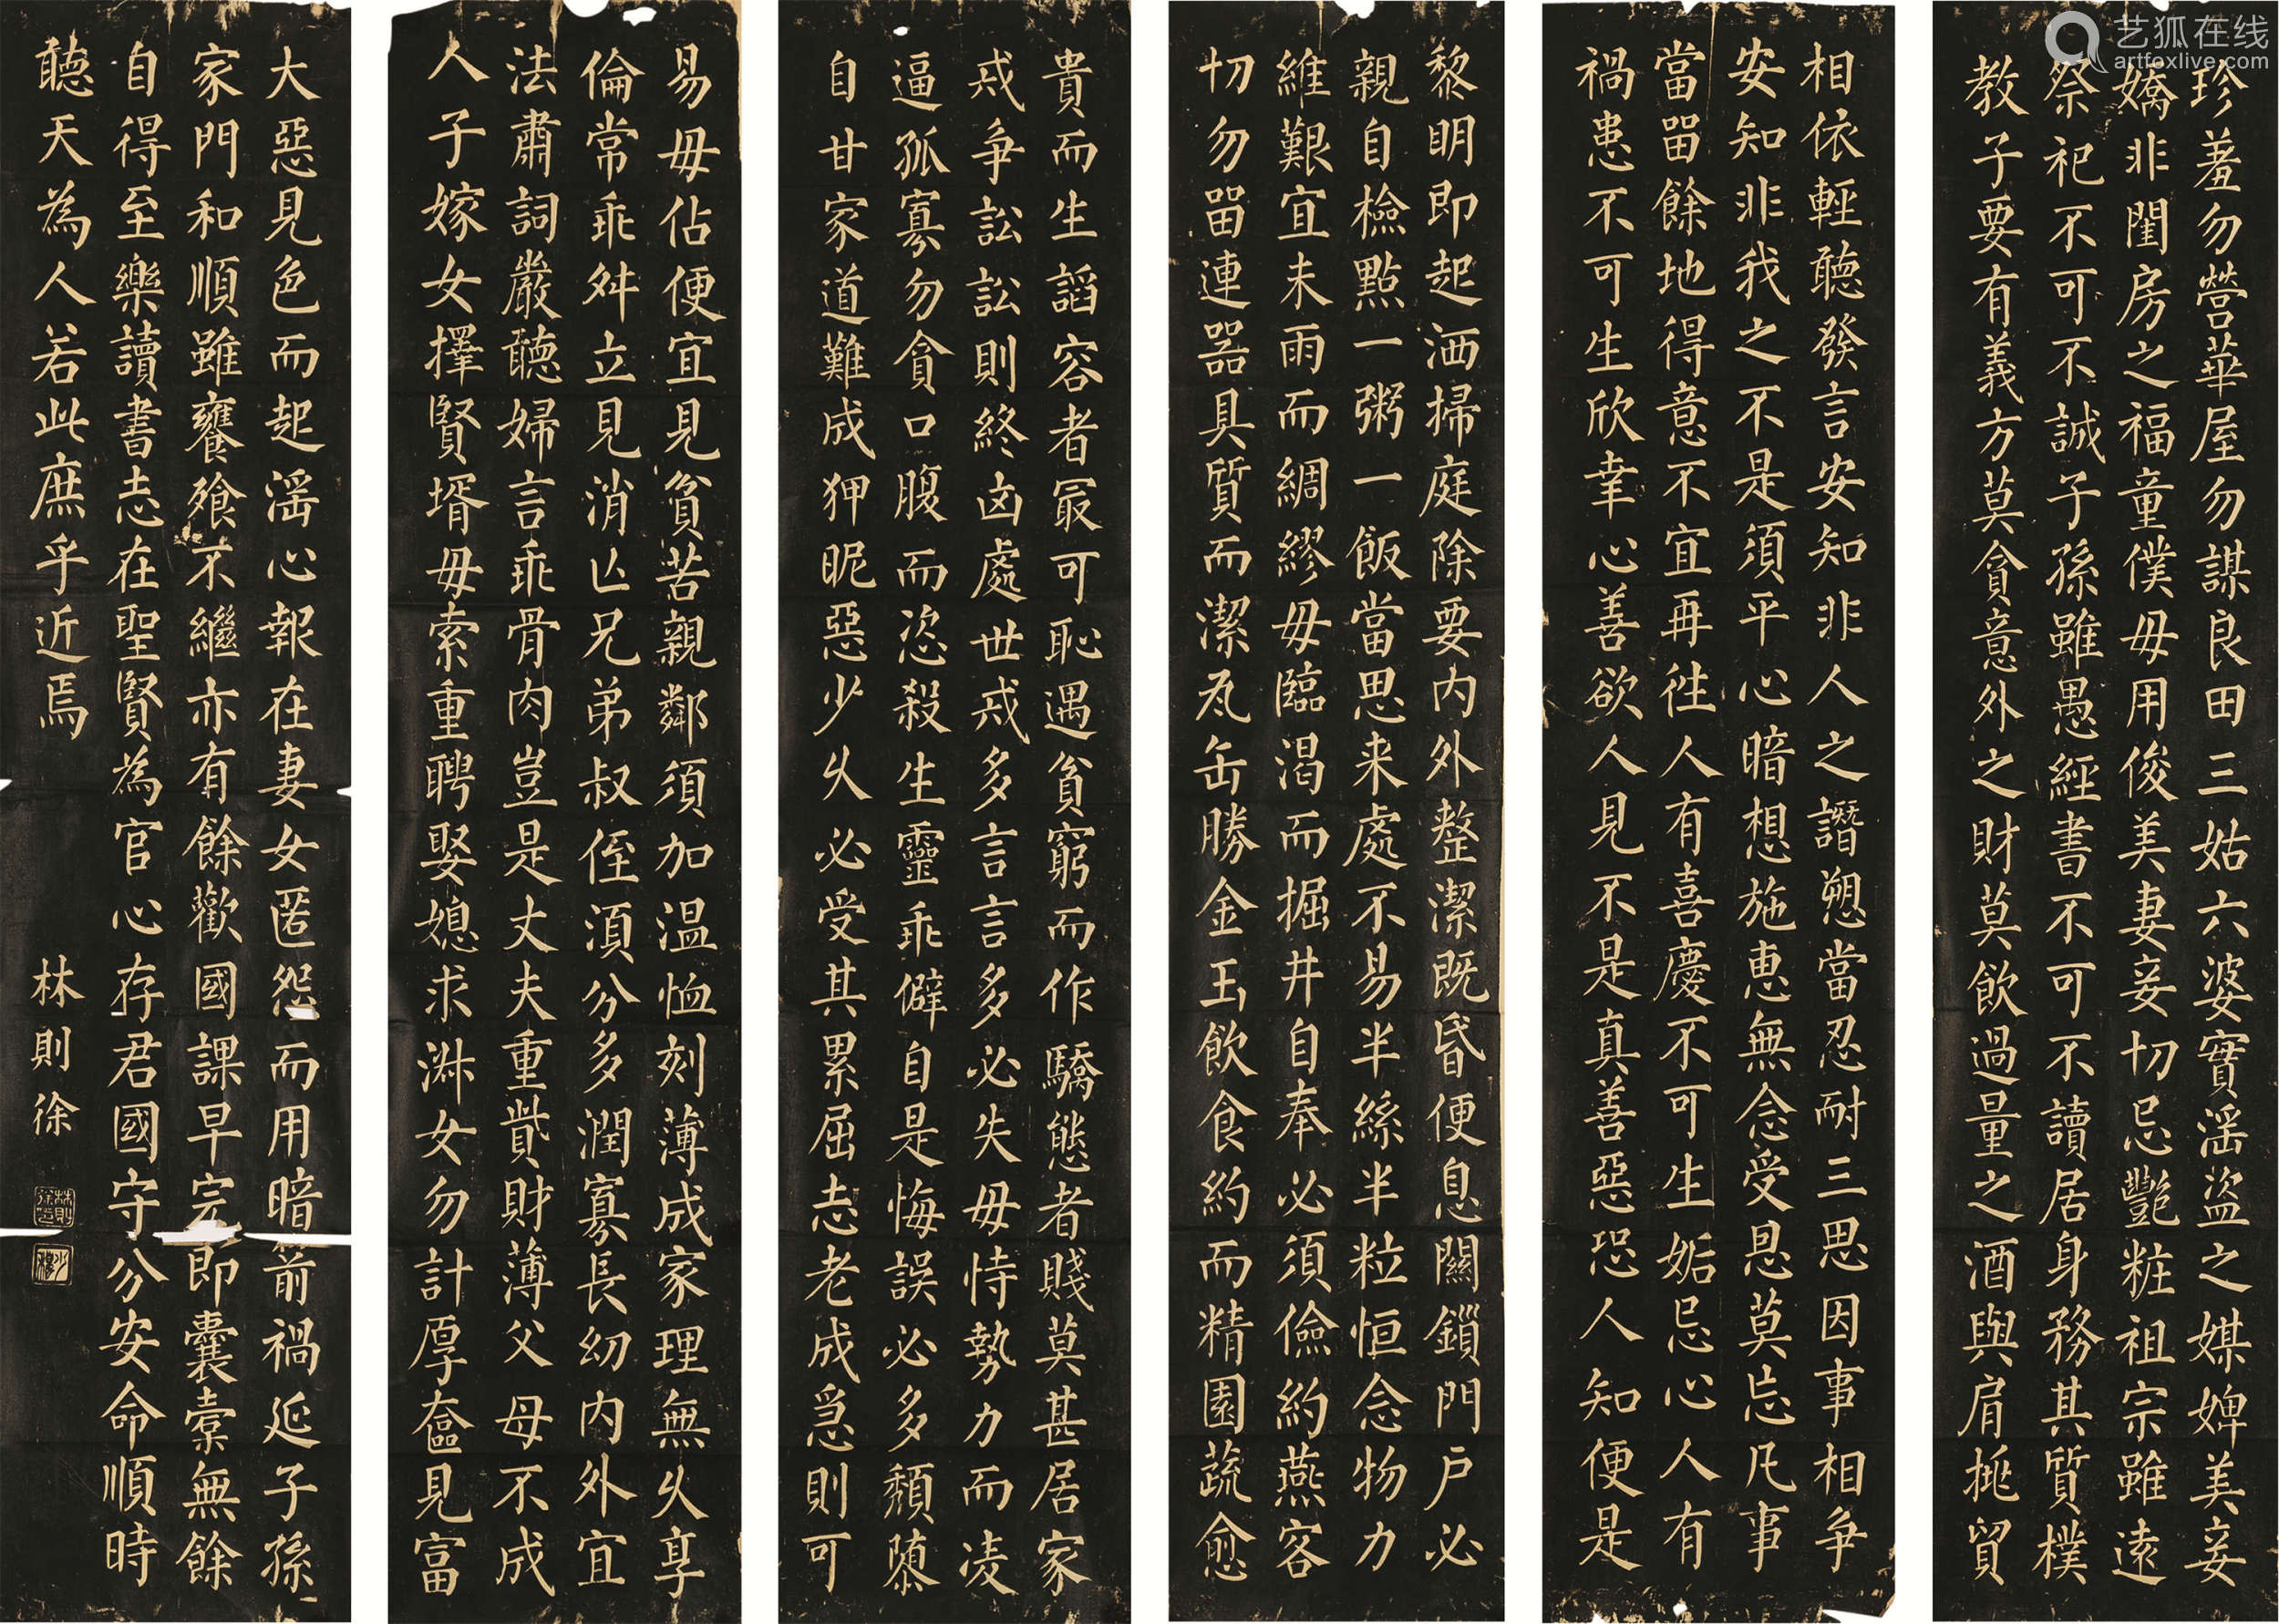 珍羞勿營華屋勿謀良田三姑六婆實淫盜之媒婢美妾
嬌非閨房之福童僕毋用俊美妻妾切忌艷粧祖宗雖遠
祭祀不可不誠子孫雖愚經書不可不讀居身務其質樸
教子要有義方莫貪意外之財莫飲過量之酒與肩挑貿
相依輕聽發言安知非人之譖愬當忍耐三思因事相爭
安知非我之不是須平心暗想施惠無念受恩莫忘凡事
當留餘地得意不宜再往人有喜慶不可生妬忌心人有
禍患不可生欣幸心善欲人見不是真善惡恐人知便是
黎明即起洒掃庭除要內外整潔既昏便息關鎖門戶必
親自檢點一粥一飯當思来處不易半絲半粒恒念物力
維艱宜未雨而綢繆毋臨渴而掘井自奉必須儉約燕客
切勿留連器具質而潔瓦缶勝金玉飲食約而精園蔬愈
貴而生諂容者最可恥遇貧窮而作驕態者賤莫甚居家
戒爭訟訟則終凶處世戒多言言多必失毋恃勢力而凌
逼孤寡勿貪口腹而恣殺生靈乖僻自是悔誤必多頹隳
自甘家道難成狎昵惡少久必受其累屈志老成急則可
易毋佔便宜見貧苦親鄰須加溫恤刻薄成家理無久享
倫常乖舛立見消亡兄弟叔侄須分多潤寡長幼內外宜
法肅詞嚴聽婦言乖骨肉豈是丈夫重貲財薄父母不成
人子嫁女擇賢壻毋索重聘娶媳求淑女勿計厚奩見富
大惡見色而起淫心報在妻女匿怨而用暗箭禍延子孫
家門和順雖饔飧不繼亦有餘歡國課早完即囊橐無餘
自得至樂讀書志在聖賢為官心存君國守分安命順時
聽天為人若此庶乎近焉
林則徐
林則徐印
少穆
艺狐在线
artfoxlive.com